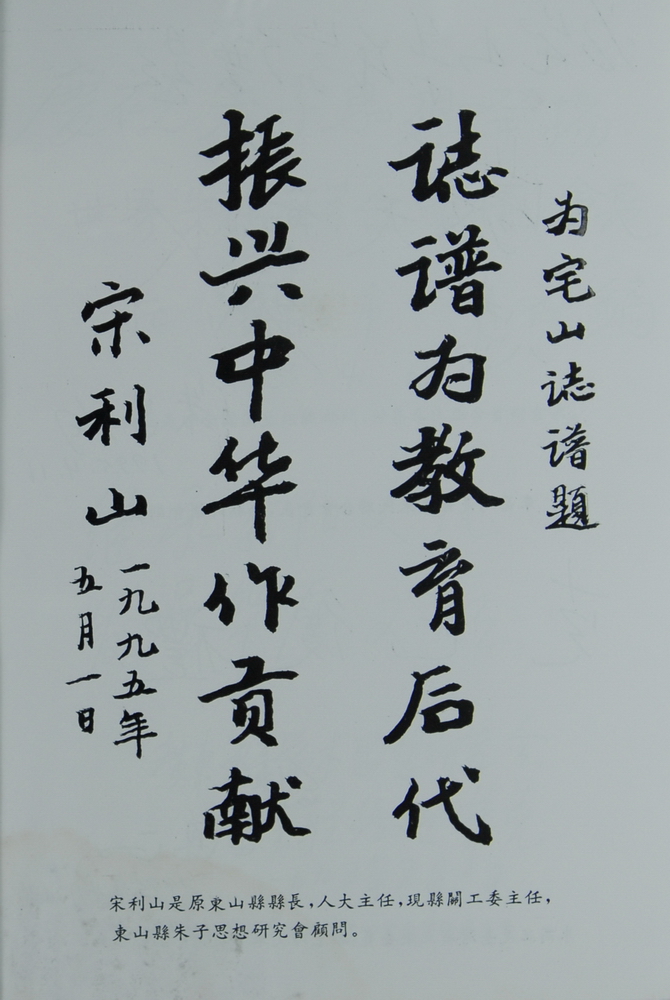 为宅山誌谱题
誌谱为教育后代
振兴中华作贡献
宋利山
一九九五年
五月一日
宋利山是原東山縣縣長，人大主任，現縣關工委主任，
東山縣朱子思想研究會顧問。